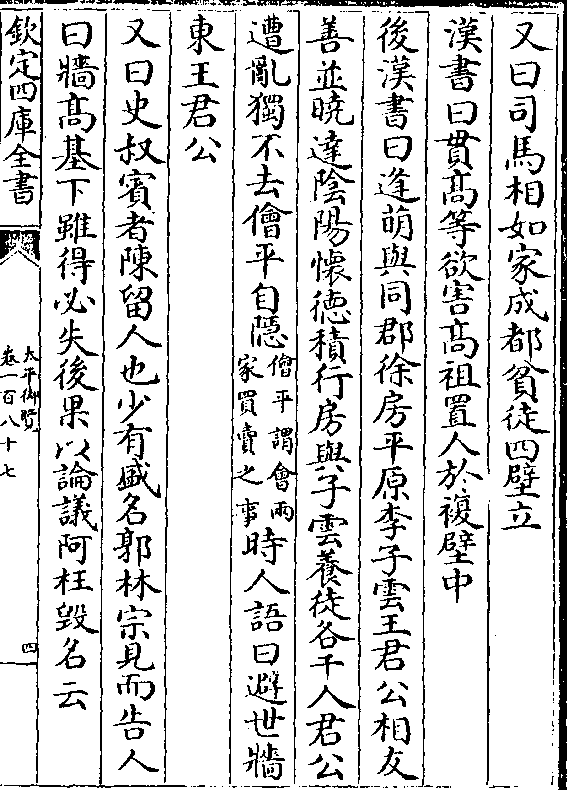 又曰司馬相如家成都貧徒四壁立
漢書曰貫髙等欲害髙祖置人於複壁中
後漢書曰逢萌與同郡徐房平原李子雲王君公相友
善並曉達陰陽懐徳積行房與子雲養徒各千人君公
遭亂獨不去儈平自隱儈平謂會兩家買賣之事時人語曰避世牆
東王君公
又曰史叔賓者陳留人也少有盛名郭林宗見而告人
曰牆髙基下雖得必失後果以論議阿枉毁名云
欽定四庫全書
太平御覽
卷一百八十七
四